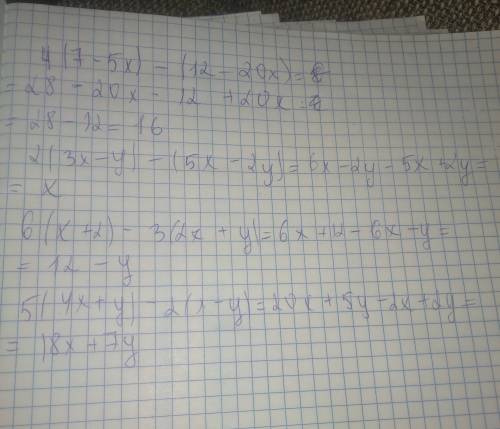 4(7-5x) - (12-20x)=
= 28 - 20x - 12 + 20x =
= 28-12= 16
2(3x-y) - (5x-2y)=6x-2y-5x+2y=
= x
6(x+2) - 3(2x+y)=6x+12-6x-y=
= 12 - y
5(4x+y)-2(x-y)=20x+5y-2x+2y=
= 18x+7y